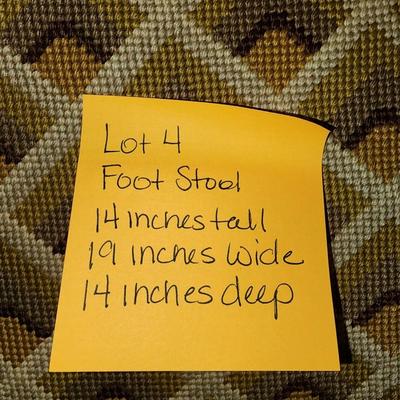 Lot 4
Foot Stool
14 inches tall
19 inches wide
14 inches deep